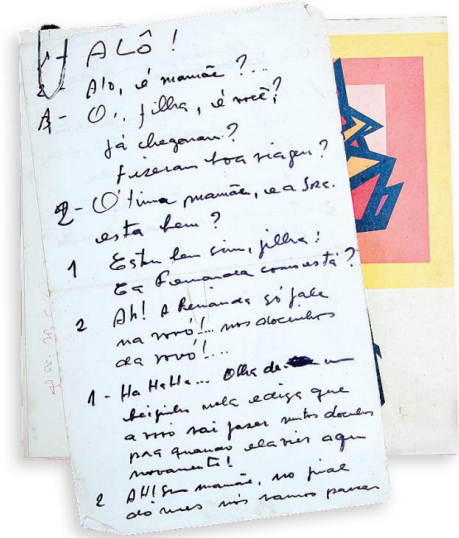 1- ALÔ!
2- Alo, é mamãe?...
1- Oi, filha, é você?
Já chegaram?
Fizeram boa viagem?
2- Ótima mamãe, e a Sra.
esta bem?
1 Estou bem sim, filha!
E a Fernanda como está?
2 Ah! A Fernanda só fala
na vovó!... nos docinhos
da vovó!...
1- Ha Ha Ha... Olha de um
beijinho nela e diga que
a vovó vai fazer muitos docinhos
pra quando ela vier aqui
novamente!
2 AH! Sim mamãe, no final
do mes nós vamos passar